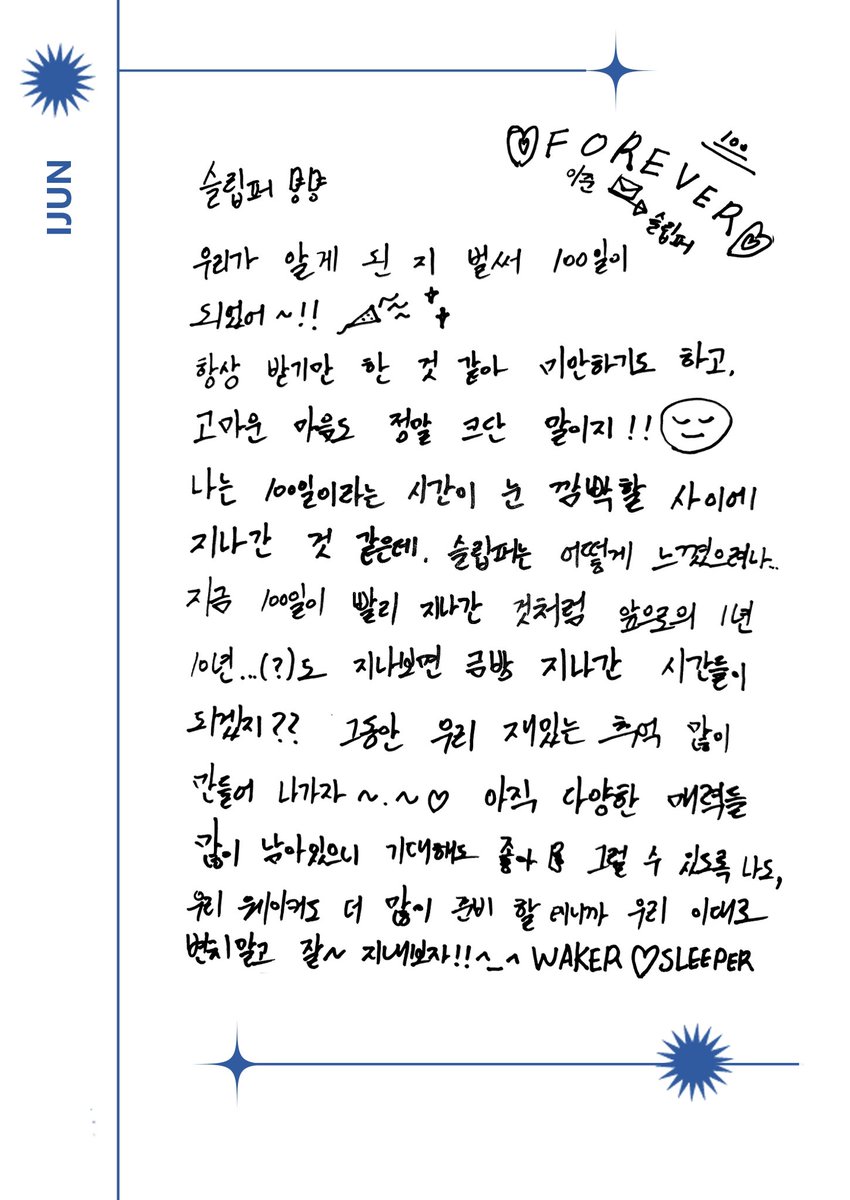 IJUN
FOREVER 100
이준
슬립퍼
슬립퍼
우리가 알게 된 지 벌써 100일이
되었어~!!
항상 받기만 한 것 같아 미안하기도 하고,
고마운 마음도 정말 크단 말이지!!
나는 100일이라는 시간이 눈 깜빡할 사이에
지나간 것 같은데. 슬립퍼는 어떻게 느꼈으려나...
지금 100일이 빨리 지나간 것처럼 앞으로의 1년
10년...(?)도 지나보면 금방 지나간 시간들이
되겠지?? 그동안 우리 재밌는 추억 많이
만들어 나가자~.~♡ 아직 다양한 매력들
많이 남아있으니 기대해도 좋아 그럴 수 있도록 나도,
우리 웨이커도 더 많이 준비 할 테니까 우리 이대로
변치말고 잘~ 지내보자!!^_^ WAKER♡SLEEPER